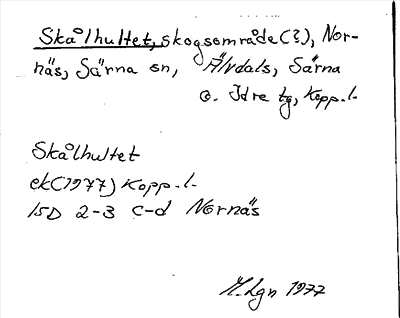 Skålhultet, skogsområde(?), Nor-
näs, Särna sn, Älvdals, Särna
o. Idre tg, Kopp.l.
Skålhultet
ek(1977) Kopp.l.
15D 2-3 c-d Nornäs
M.Lgn 1977